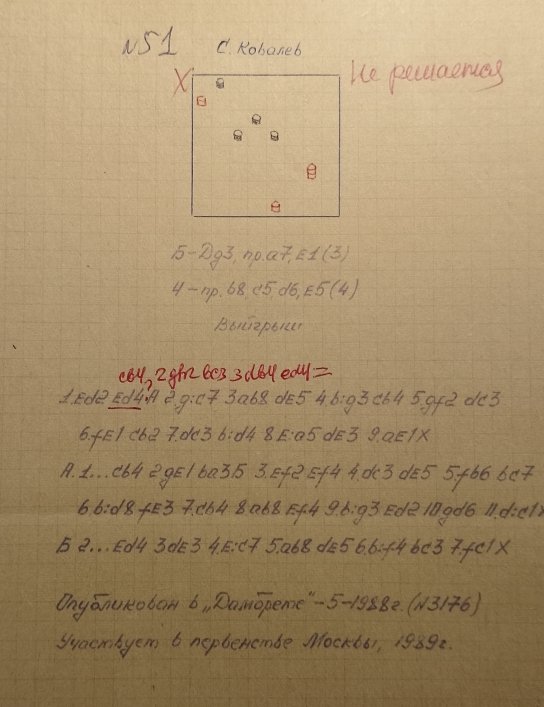 №51 С. Ковалев
Х Не решается
Б-Dg3, пр.a7, E1(3)
Ч-пр. b8, c5, d6, E5(4)
Выигрыш
cb4, 2 gh2 bc3 3 db4 ed4=
1. Ed2 Ed4.A 2.g:c7 3 ab8 dE5 4.b:g3 cb4 5.gf2 dc3
6.fE1 cb2 7.dc3 b:d4 8 E:a5 dE3 9.aE1X
A. 1... cb4 2 gE1 ba3.5 3.Ef2 Ef4 4.dc3 dE5 5.fb6 bc7
6.b:d8 fE3 7.cb4 8 ab8 Ef4 9.b:g3 Ed2 10 gd6 11.d:c1X
Б 2... Ed4 3 dE3 4.E:c7 5.ab8 dE5 6.b:f4 bc3 7.fc1 X
Опубликован в „Дамбрете"-5-1988г. (N3176)
Участвует в первенстве Москвы, 1989г.